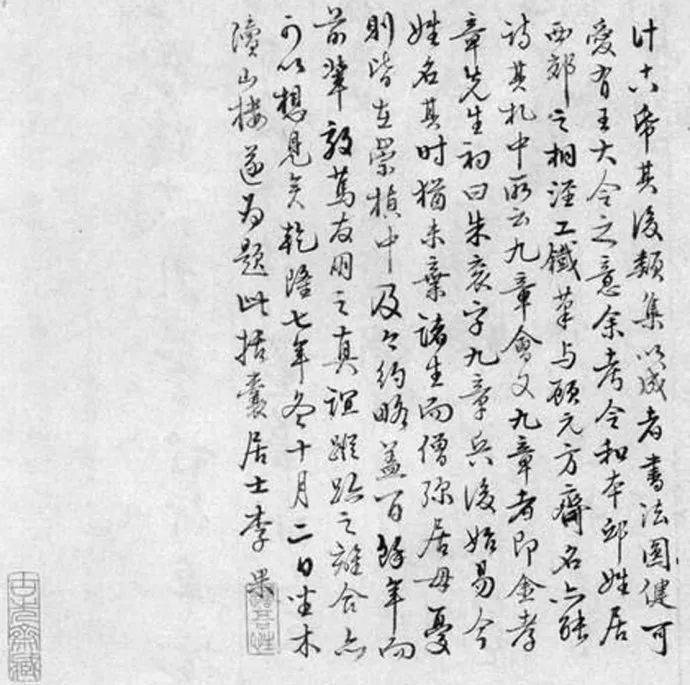 计六帋其後類集以成者書法圓健可
愛有王大令之意余考令和本邱姓居
西郊之桐涇工鐵筆与顧元方齊名亦能
詩其札中所云九章會文九章者即金孝
章先生初曰朱衮字九章兵後始易今
姓名其時猶未棄諸生而僧弥居母憂
則皆在崇禎中及今約略蓋百餘年而
前輩敦篤友朋之真誼蹤跡之離合亦
可以想見矣乾隆七年冬十月二日坐木
瀆山樓遂为題此括囊居士李果